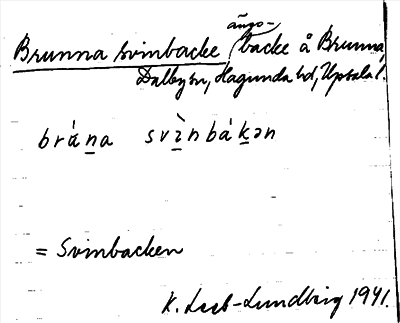 Brunna svinbacke, ängs-backe å Brunna,
Dalby sn, Hagunda hd, Upsala l.
bránạ svìnbákən
= Svinbacken
K. Leeb-Lundberg 1941.